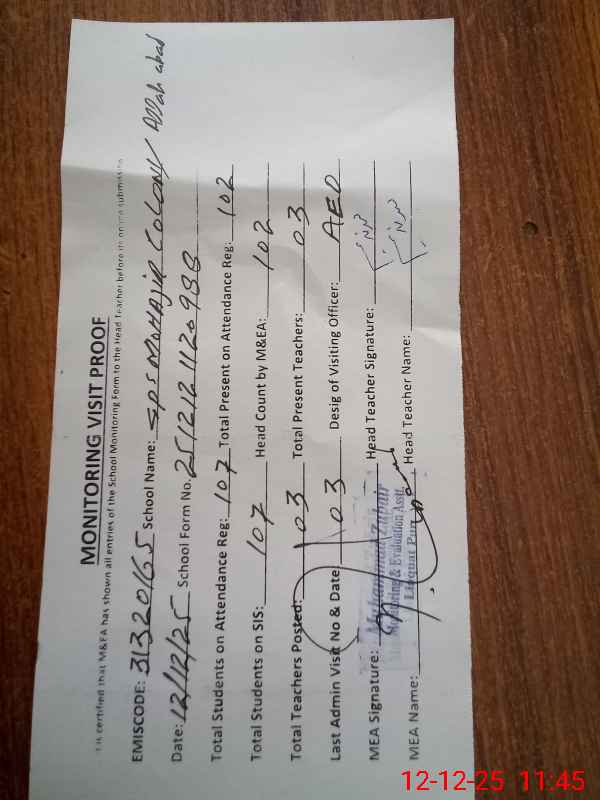 MONITORING VISIT PROOF
t is certified that M&EA has shown all entries of the School Monitoring Form to the Head Teacher before its online submission.
EMISCODE: 31320165 School Name: GPS MOHAJIR COLONY Allah abad
Date: 12/12/25 School Form No. 2512121120988
Total Students on Attendance Reg: 107 Total Present on Attendance Reg: 102
Total Students on SIS: 107 Head Count by M&EA: 102
Total Teachers Posted: 03 Total Present Teachers: 03
Last Admin Visit No & Date: 03 Desig of Visiting Officer: AEO
MEA Signature: Head Teacher Signature:
MEA Name: Head Teacher Name:
Muhammad Zubair
Monitoring & Evaluation Asstt
Liaquat Pur
12-12-25 11:45